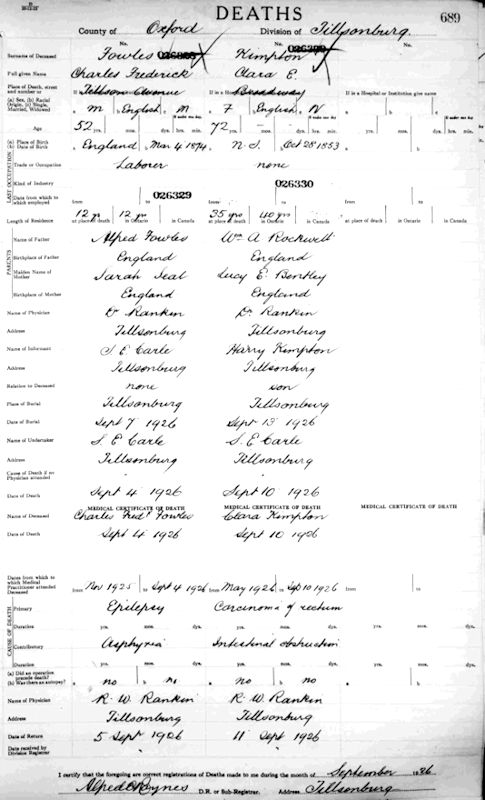 DEATHS
689
County of Oxford Division of Tillsonburg.
No. No.
Surname of Deceased Fowles 026328 Kimpton 026329
Full given Name Charles Frederick Clara E.
Place of Death, street and number or Tillson Avenue Broadway If in a Hospital or Institution give name
(a) Sex, (b) Racial Origin, (c) Single, Married, Widowed m English M F English W
If under one day If under one day If under one day
Age 52 yrs. mos. dys. hrs. min. 72 yrs. mos. dys. hrs. min. yrs. mos. dys. hrs. min.
(a) Place of Birth
(b) Date of Birth a England b Mar 4 1874 a N.S. b Oct 28 1853 a b
LAST OCCUPATION
Trade or Occupation Laborer none
Kind of Industry
026329 026330
Date from which to which employed from to from to from to
Length of Residence 12 yrs at place of death 12 yrs in Ontario in Canada 35 yrs at place of death 40 yrs in Ontario in Canada at place of death in Ontario in Canada
PARENTS
Name of Father Alfred Fowles Wm A Rockwell
Birthplace of Father England England
Maiden Name of Mother Sarah Seal Lucy E. Bentley
Birthplace of Mother England England
Name of Physician Dr Rankin Dr Rankin
Address Tillsonburg Tillsonburg
Name of Informant S E Carle Harry Kimpton
Address Tillsonburg Tillsonburg
Relation to Deceased none son
Place of Burial Tillsonburg Tillsonburg
Date of Burial Sept 7 1926 Sept 13 1926
Name of Undertaker S. E Carle S. E Carle
Address Tillsonburg Tillsonburg
Cause of Death if no Physician attended
Date of Death Sept 4 1926 Sept 10 1926
MEDICAL CERTIFICATE OF DEATH MEDICAL CERTIFICATE OF DEATH MEDICAL CERTIFICATE OF DEATH
Name of Deceased Charles Fredk Fowles Clara Kimpton
Date of Death Sept 4 1926 Sept 10 1926
Dates from which to which Medical Practitioner attended Deceased from Nov 1925 to Sept 4 1926 from May 1926 to Sep 10 1926 from to
CAUSE OF DEATH
Primary Epilepsy Carcinoma of rectum
Duration yrs. mos. dys. yrs. mos. dys. yrs. mos. dys.
Contributory Asphyxia Intestinal obstruction
Duration yrs. mos. dys. yrs. mos. dys. yrs. mos. dys.
(a) Did an operation precede death?
(b) Was there an autopsy? a no b no a no b no a b
Name of Physician R. W. Rankin R. W. Rankin
Address Tillsonburg Tillsonburg
Date of Return 5 Sept 1926 11 Sept 1926
Date received by Division Registrar
I certify that the foregoing are correct registrations of Deaths made to me during the month of September 1926
Alfred Raynes D.R. or Sub-Registrar. Address Tillsonburg